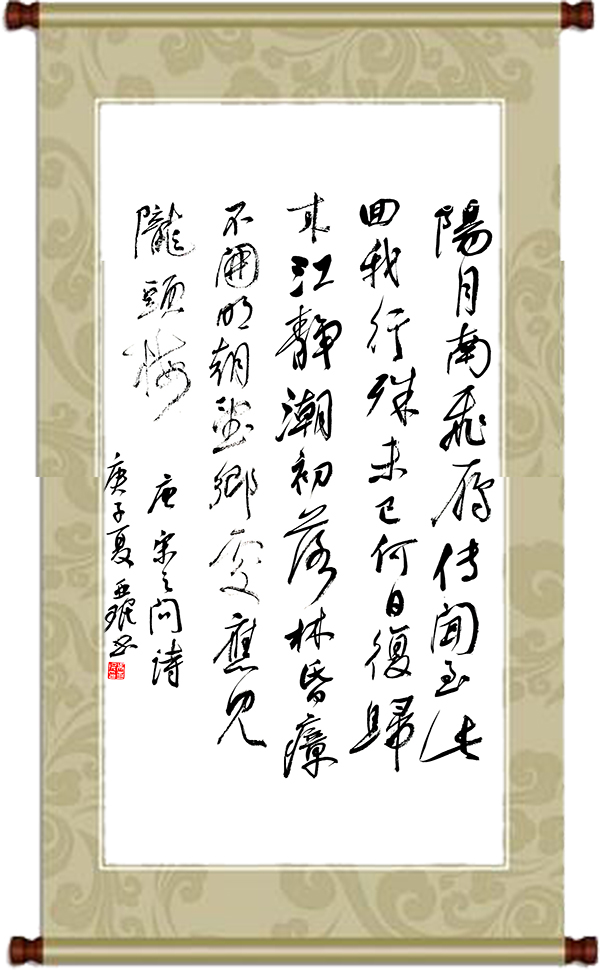 陽月南飛雁傳聞至此
回我行殊未已何日復歸
來江靜潮初落林昏瘴
不開明朝望鄉處應見
隴頭梅
唐宋之問詩
庚子夏亞飛书